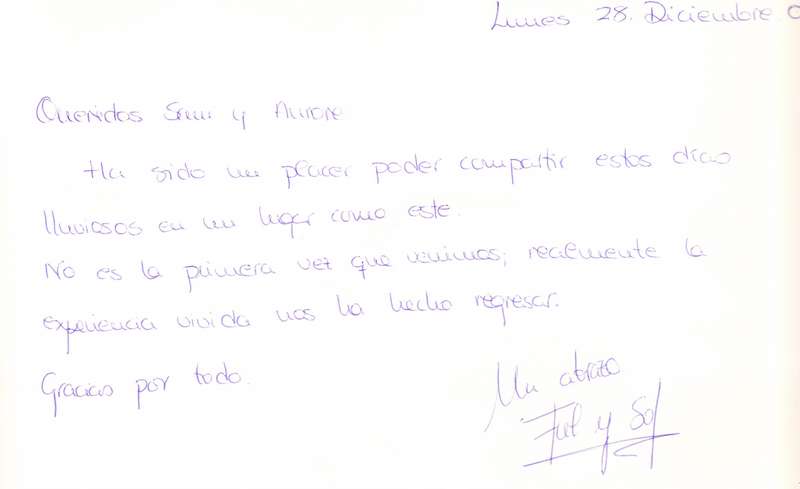 Lunes 28. Diciembre
Queridos Samu y Aurore
Ha sido un placer poder compartir estos días
lluviosos en un lugar como este.
No es la primera vez que venimos; realmente la
experiencia vivida nos ha hecho regresar.
Gracias por todo.
Un abrazo
y Sol